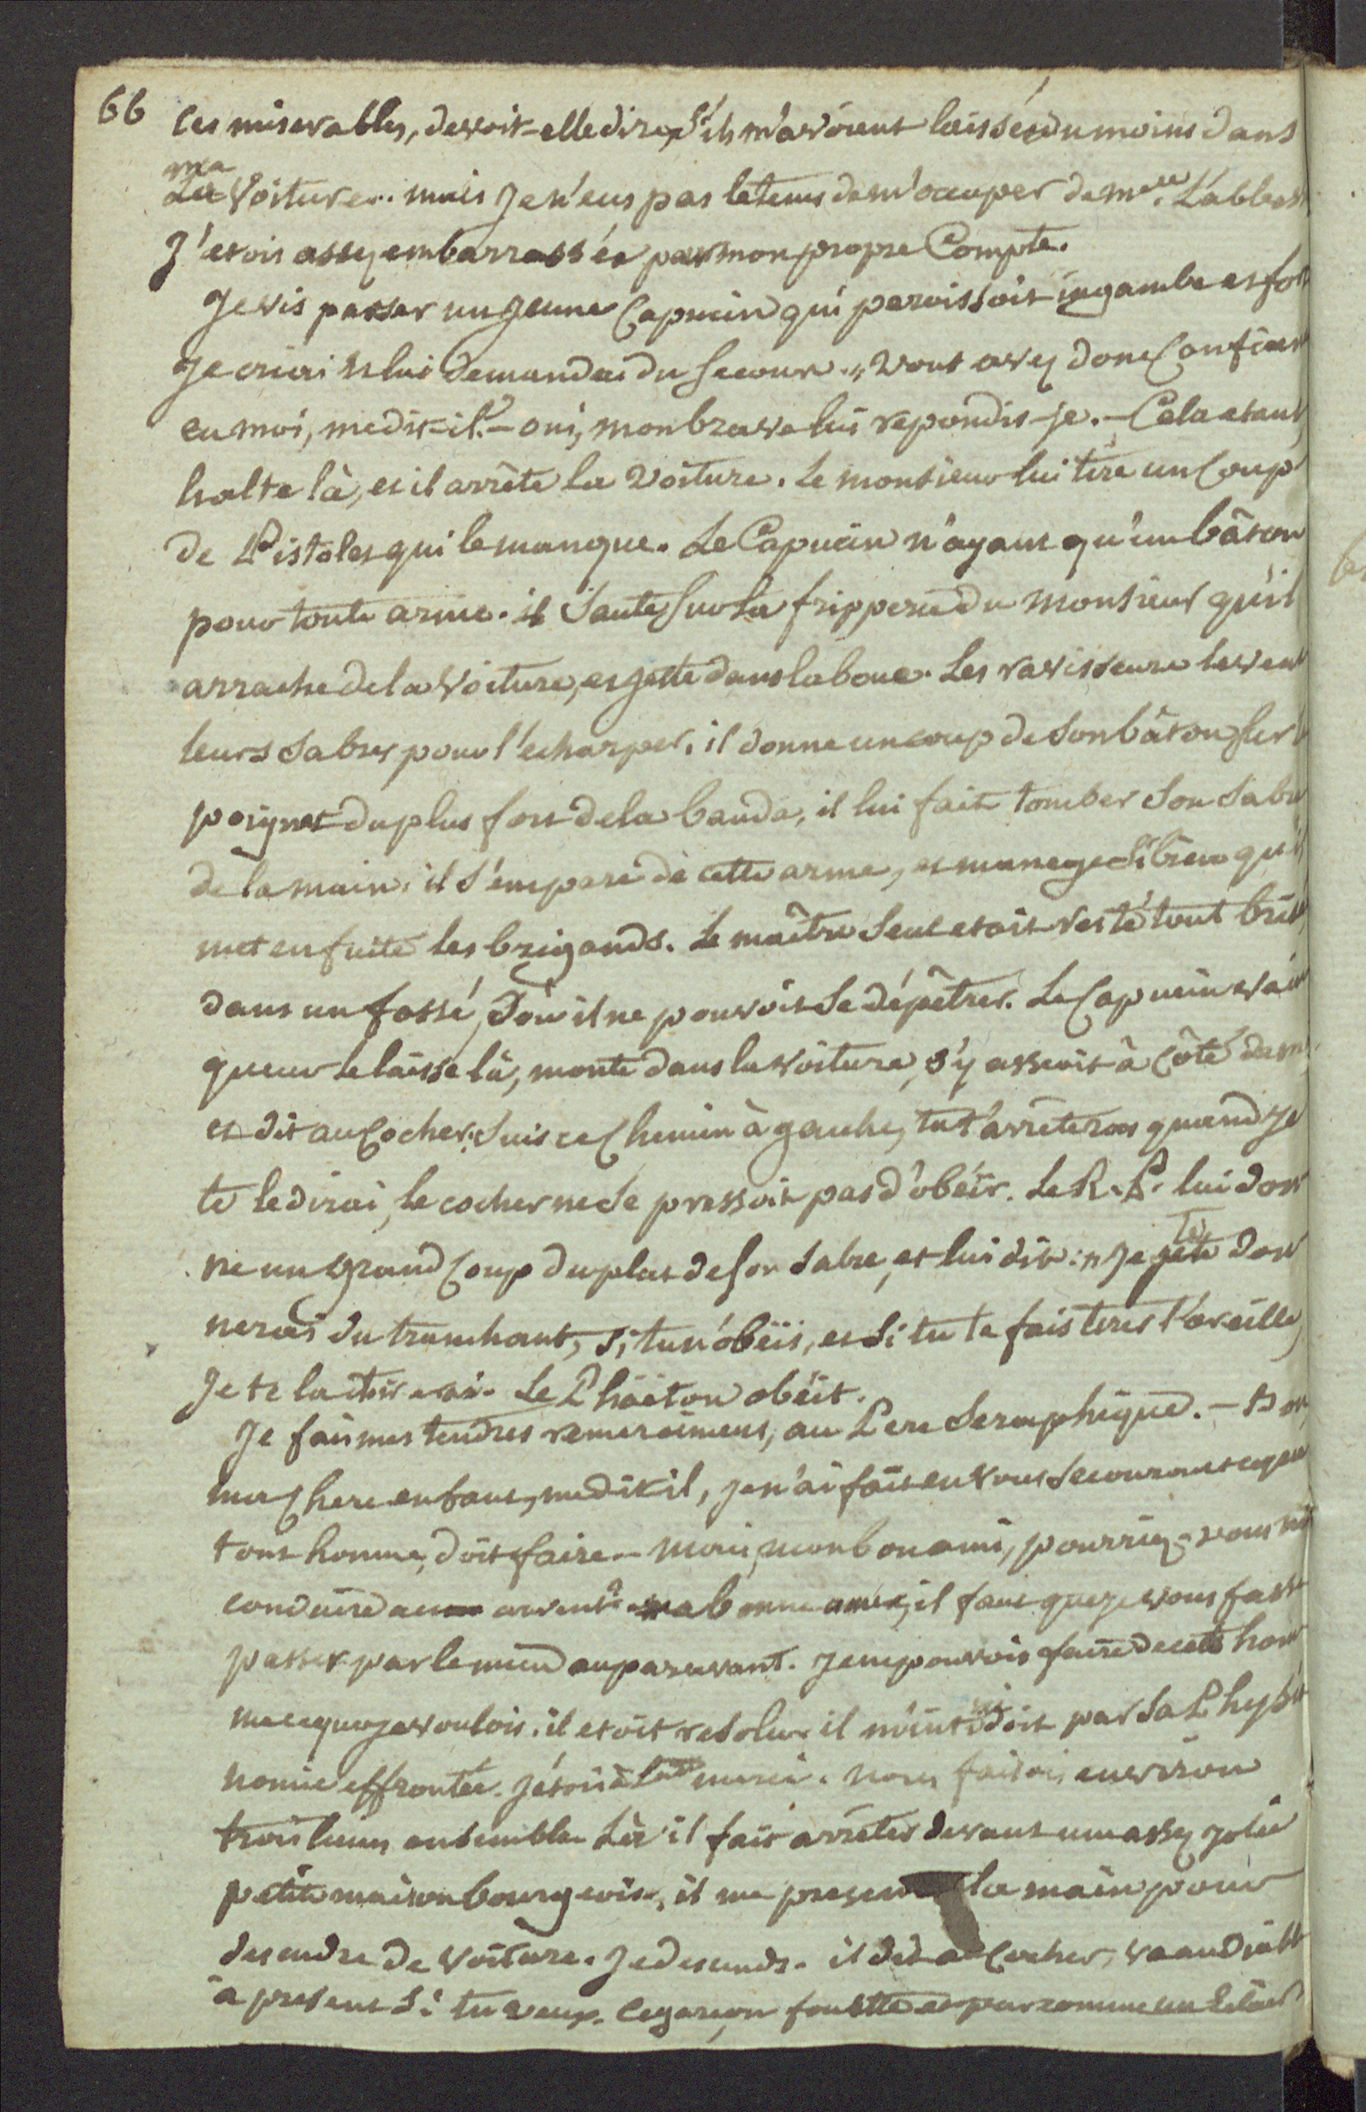 66
ces miserables, devoit-elle dire, s'ils m'avoient laissée du moins dans
ma Voiture.. mais je n'eus pas le tems de m'occuper de mlle. L'abbesse
J'etois assez embarrassée par mon propre Compte.
Je vis passer un jeune Capucin qui paroissoit ingambe et fort
Je criai & lui demandai du secours. " Vous avez donc Confiance
en moi, me dit-il? - oui, mon brave lui repondis-je. - Cela etant,
halte là, et il arrête la Voiture. Le monsieur lui tire un Coup
de Pistolet qui le manque. Le Capucin n'ayant qu'un bâton
pour toute arme. il saute sur la fripperie du monsieur qu'il
arrache de la Voiture, et jette dans la boue. Les ravisseurs levent
leurs sabres pour l'echarper. il donne un coup de son bâton sur le
poignet du plus fort de la bande, il lui fait tomber son sabre
de la main, il s'empare de cette arme, et manege si bien qu'il
met en fuite les brigands. Le maître seul etoit resté tout brisé
dans un fossé, d'où il ne pouvoit se dépêtrer. Le Capucin vain
queur le laisse là, monte dans la voiture, s'y asseoit à côté de moi
et dit au Cocher: suis ce Chemin à gauche, tu t'arrêteras quand je
te le dirai, le cocher ne se pressoit pas d'obéir. Le R. P. lui don
ne un grand Coup du plat de son sabre, et lui dit: " Je te don
nerai du tranchant, si tu n'obéïs, et si tu te fais tirer l'oreille,
Je te la tirerai. Le Phaëton obéit.
Je fais mes tendres remercimens, au Pere Seraphique. - Bon,
ma Chere enfant, me dit il, je n'ai fait en vous secourant ce que
tout homme, doit faire. - mais, mon bon ami, pourriez-vous me
conduire au couvent? - ma bonne amie, il faut que je vous fasse
passer par le mien auparavant. Je ne pouvois faire de cet hom
me ce que je voulois. il etoit resolu. il m'intimidoit par sa Physio
nomie effrontée. J'étois à sa merci. nous faisois environ
trois lieues ensemble. Là il fait arrêter devant une assez jolie
petite maison bourgeoise, il me presente la main pour
descendre de Voiture. Je descends. il dit au Cocher, va au diable
à present si tu veux. Ce garçon fouette et part comme un Eclair